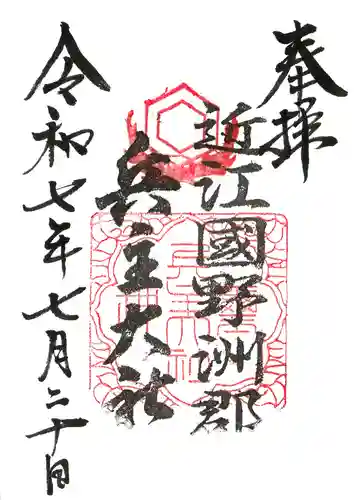 奉拝
近江國野洲郡
兵主大社
令和七年七月二十日